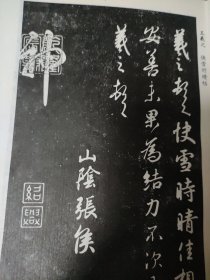 王羲之 快雪时晴帖
羲之頓首快雪時晴佳想
安善未果為結力不次
羲之頓首
山陰張侯
神
紹興